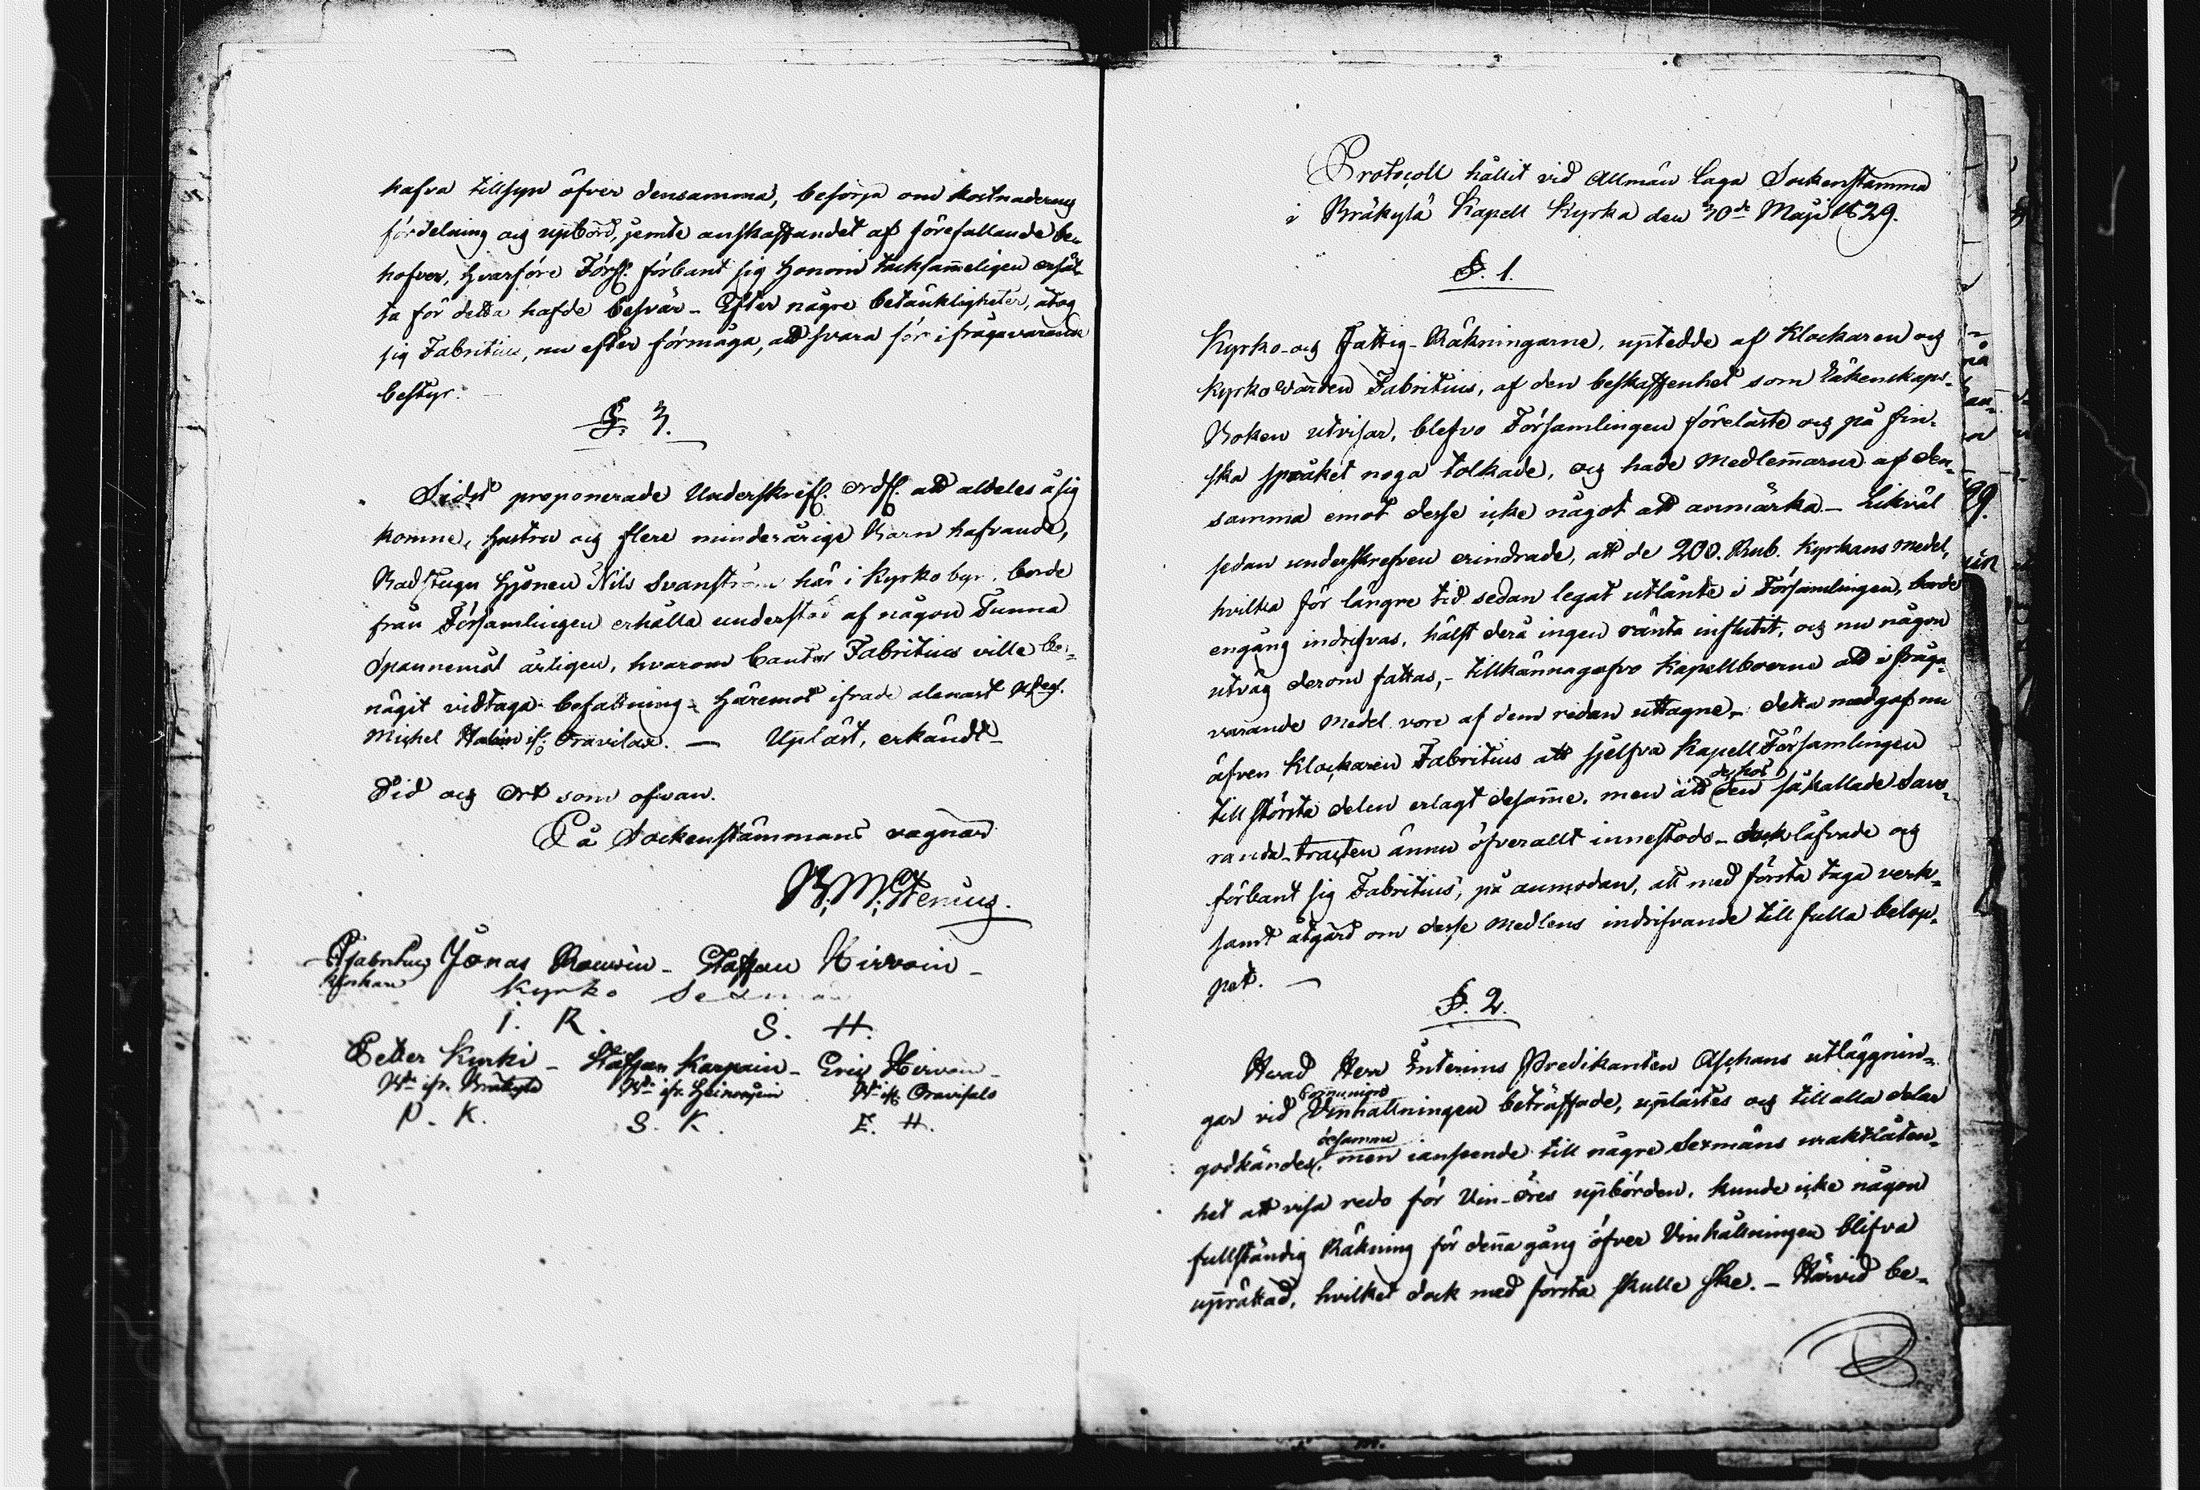 hafva tillsyn öfver densamma, besörja om kostnadernas
fördelning och upbörd, jemte anskaffandet af förefallande be-
hofver, hvarföre Förs. förbant sig honom tacksammeligen ersät-
ta för detta hafde besvär - Efter några betänkligheter, åtog
sig Fabritius, nu efter förmåga, att svara för ifrågavarande
bestyr. -
§. 3.
Sidst proponerade Underskrefl. ordf. att aldeles åsig
komne, hustru och flere minderårige Barn hafvande,
Badstugu hjonen Nils Svanström här i Kyrko byn, borde
från Församlingen erhålla understöd af någon Tunna
Spannemål årligen, hvarom Cantor Fabritius ville be-
någit vidtaga befattning - Häremot ifrade alenast
Michel Oravilax. — Upläst, erkändt -
Tid och Ort som ofvan.
På Sockenstämmans vägnar
B. M. Stenius.
Fabritius Jonas Rouvin - Staffan Hirvoin -
Klockare Kyrko Sexmän
I. R. S. H.
Petter Kurki - Staffan Karpain - Eric Hirvoin -
Bräkylä Oravisalo
P. K. S. K. E. H.
Protocoll hållit vid Allmän Laga Sockenstämma
i Bräkylä Kapell Kyrka den 30de Maji 1829.
§. 1.
Kyrko- och Fattig-Räkningarne, uptedde af Klockaren och
Kyrkovärden Fabritius, af den beskaffenhet som Räkenskaps-
Boken utvisar, blefvo Församlingen föreläste och på fin-
ska språket noga tolkade, och hade Medlemmarne af den-
samma emot desse icke något att anmärka - Likväl
sedan underskrefven erindrade, att de 200. Rub. Kyrkans medel,
hvilka för längre tid sedan legat utlånte i Församlingen, borde
engång indrifvas, hälst derå ingen ränta influtit, och nu någon
utväg derom fattas, - tillkännagofvo Kapellboerne att ifråga-
varande Medel vore af dem redan uttagne - detta medgaf nu
äfven Klockaren Fabritius att sjelfva Kapell Församlingen
till största delen erlagt desamme, men att den såkallade Sava-
randa-tracten ännu öfverallt innestods - dock läfvade och
förbant sig Fabritius, på anmodan, att med första taga verk-
samt åtgärd om desse Medlens indrifvande till fulla belop-
pet. —
§. 2.
Hvad Herr Interims Predikanten Aschans utläggnin-
gar vid Communions Vinhållningen beträffade, uplästes och till alla delar
godkändes desamma, men i anseende till någre Sexmäns uraktlåten-
het att visa redo för Vin-öres upbörden, kunde icke någon
fullständig Räkning för denna gång öfver Vinhållningen blifva
uprättad, hvilket dock med första skulle ske. - Härvid be-